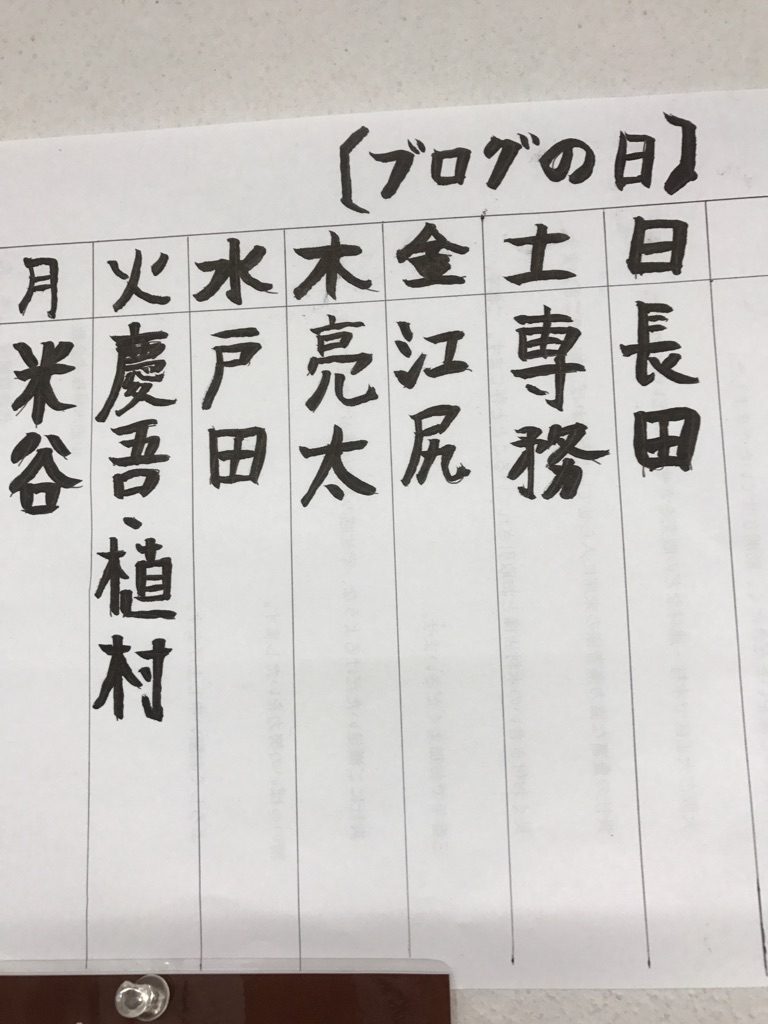 【ブログの日】
月 火 水 木 金 土 日
米谷
慶吾、植村
戸田
亮太
江尻
専務
長田